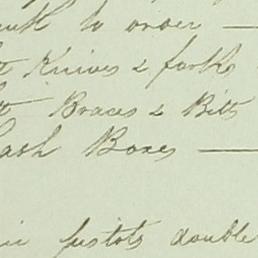 to order —
Knives & forks
Braces & Bitts
Cash Boxes —
pistols double